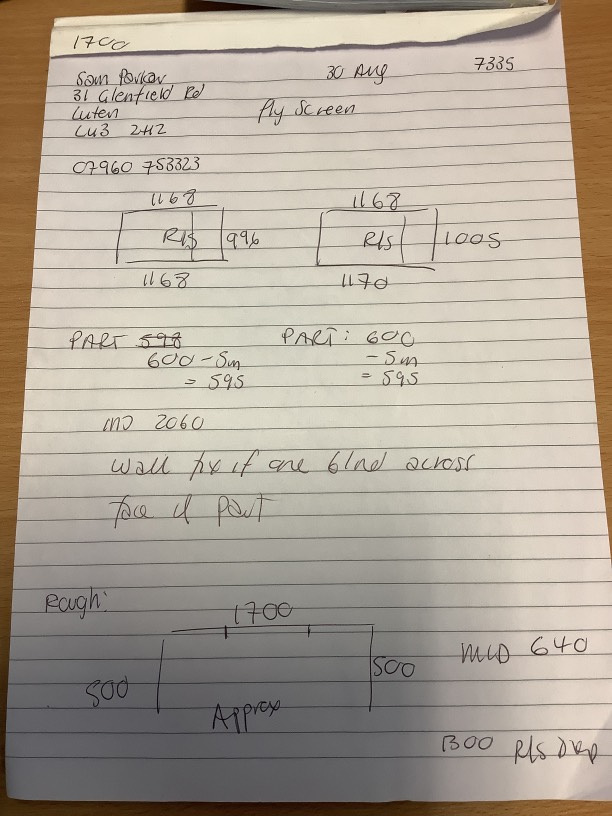 1700
Sam Parkar 30 Aug 7335
31 Glenfield Rd
Luten Fly Screen
LU3 2HZ
07960 753323
1168 1168
R/s 996 R/s 1005
1168 1170
PART 598 PART: 600
600 - 5m - 5m
= 595 = 595
2060
Wall fix if one blnd across
face of Part
Rough:
1700
500 500 MLD 640
Approx
1300 R/s Drop